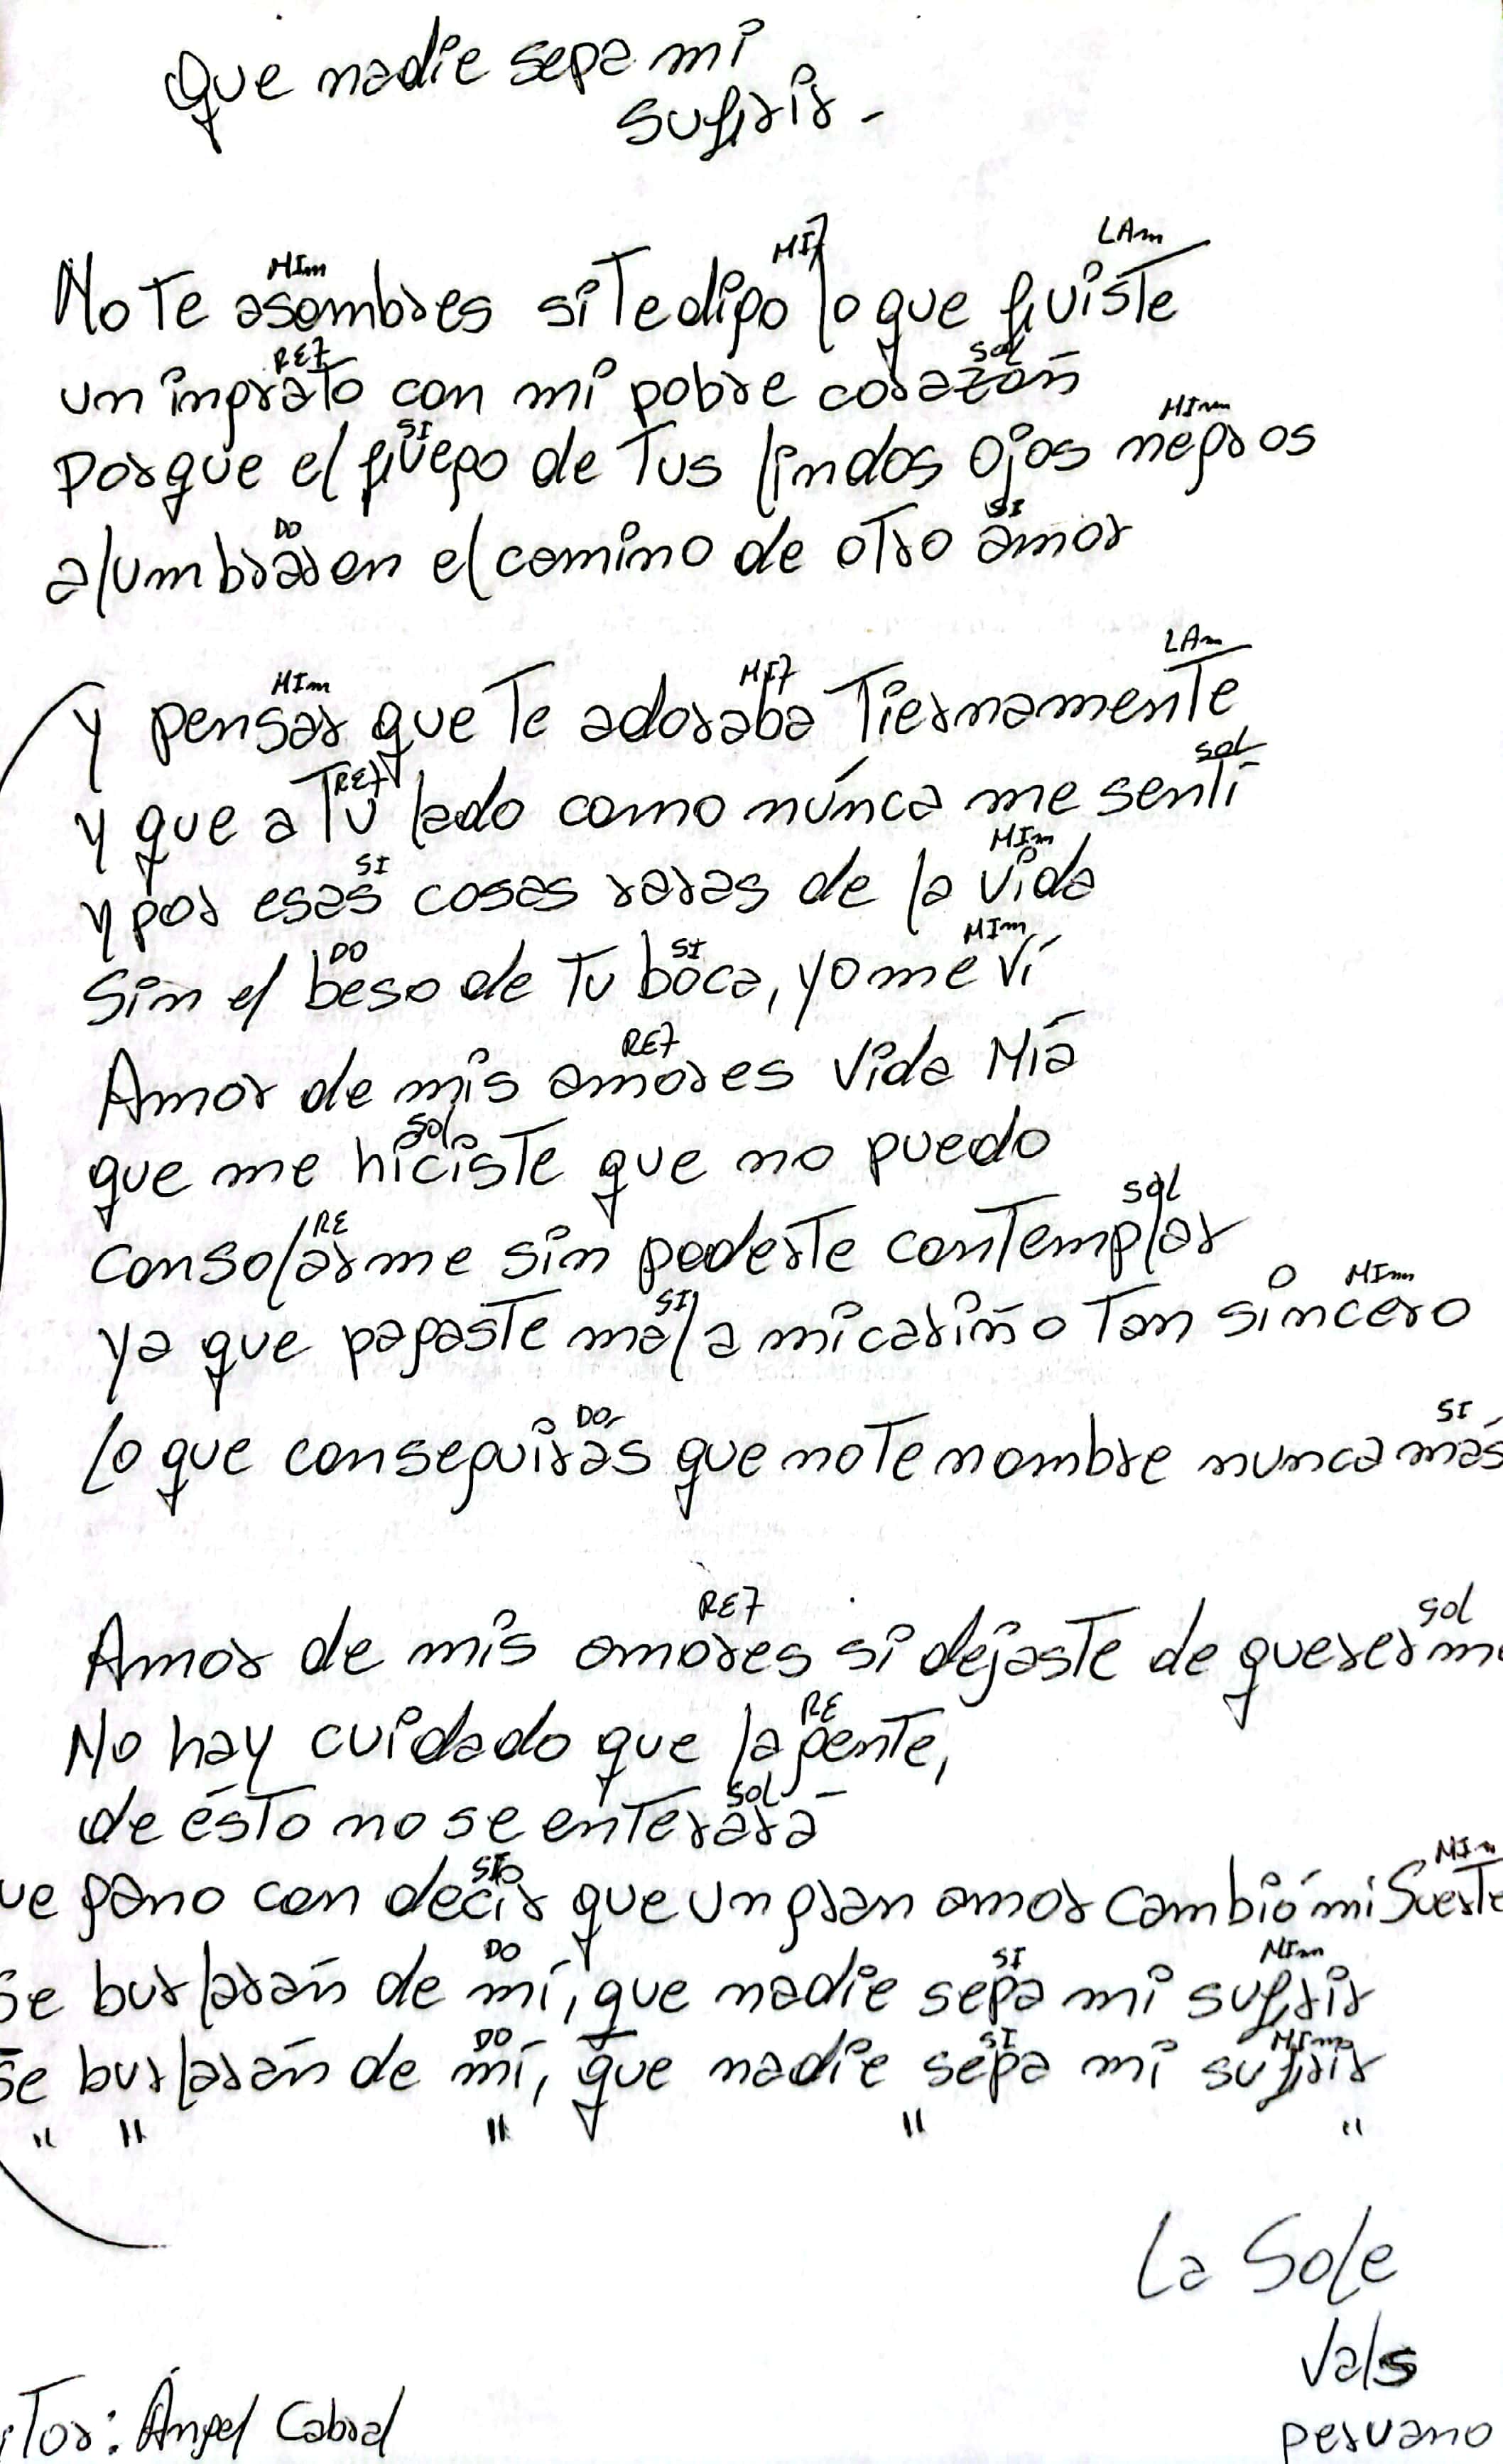 Que nadie sepa mi
sufrir -
MIm MI7 LAm
No te asombres si te digo lo que fuiste
RE7 SOL
un ingrato con mi pobre corazón
SI MIm
porque el fuego de tus lindos ojos negros
DO SI
alumbraron el camino de otro amor
MIm MI7 LAm
Y pensar que te adoraba tiernamente
RE7 SOL
y que a tu lado como núnca me sentí
SI MIm
y por esas cosas raras de la vida
DO SI MIm
Sin el beso de tu boca, yo me ví
RE7
Amor de mis amores vida Mía
SOL
que me hiciste que no puedo
RE SOL
consolarme sin poderte contemplar
SI MIm
ya que pagaste mal a mi cariño tan sincero
DO SI
Lo que conseguirás que no te nombre nunca más
RE7 SOL
Amor de mis amores si dejaste de quererme
RE
No hay cuidado que la gente,
SOL
de ésto no se enterará
SI MIm
ue gano con decir que un gran amor cambió mi Suerte
DO SI MIm
Se burlarán de mí, que nadie sepa mi sufrir
DO SI MIm
Se burlarán de mí, que nadie sepa mi sufrir
" " " " "
La Sole
Vals
peruano
itor: Ángel Cabral